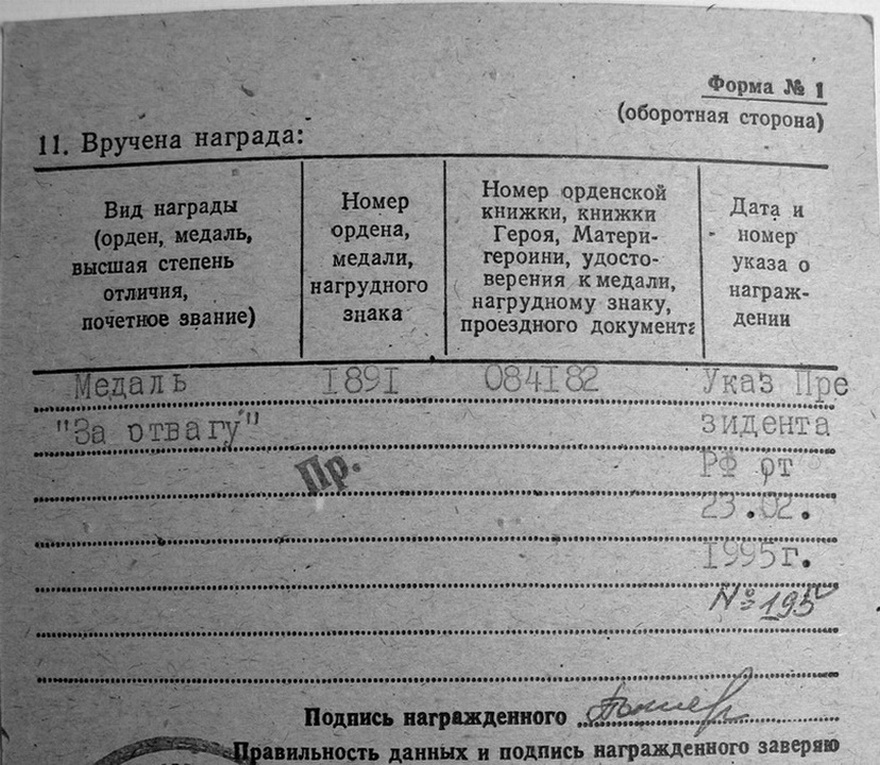 Форма № 1
(оборотная сторона)
11. Вручена награда:
Вид награды
(орден, медаль,
высшая степень
отличия,
почетное звание)
Номер
ордена,
медали,
нагрудного
знака
Номер орденской
книжки, книжки
Героя, Матери-
героини, удосто-
верения к медали,
нагрудному знаку,
проездного документа
Дата и
номер
указа о
награж-
дении
Медаль 1891 084182 Указ Пре
"За отвагу" зидента
Пр. РФ от
23.02.
1995г.
№ 195
Подпись награжденного
Правильность данных и подпись награжденного заверяю